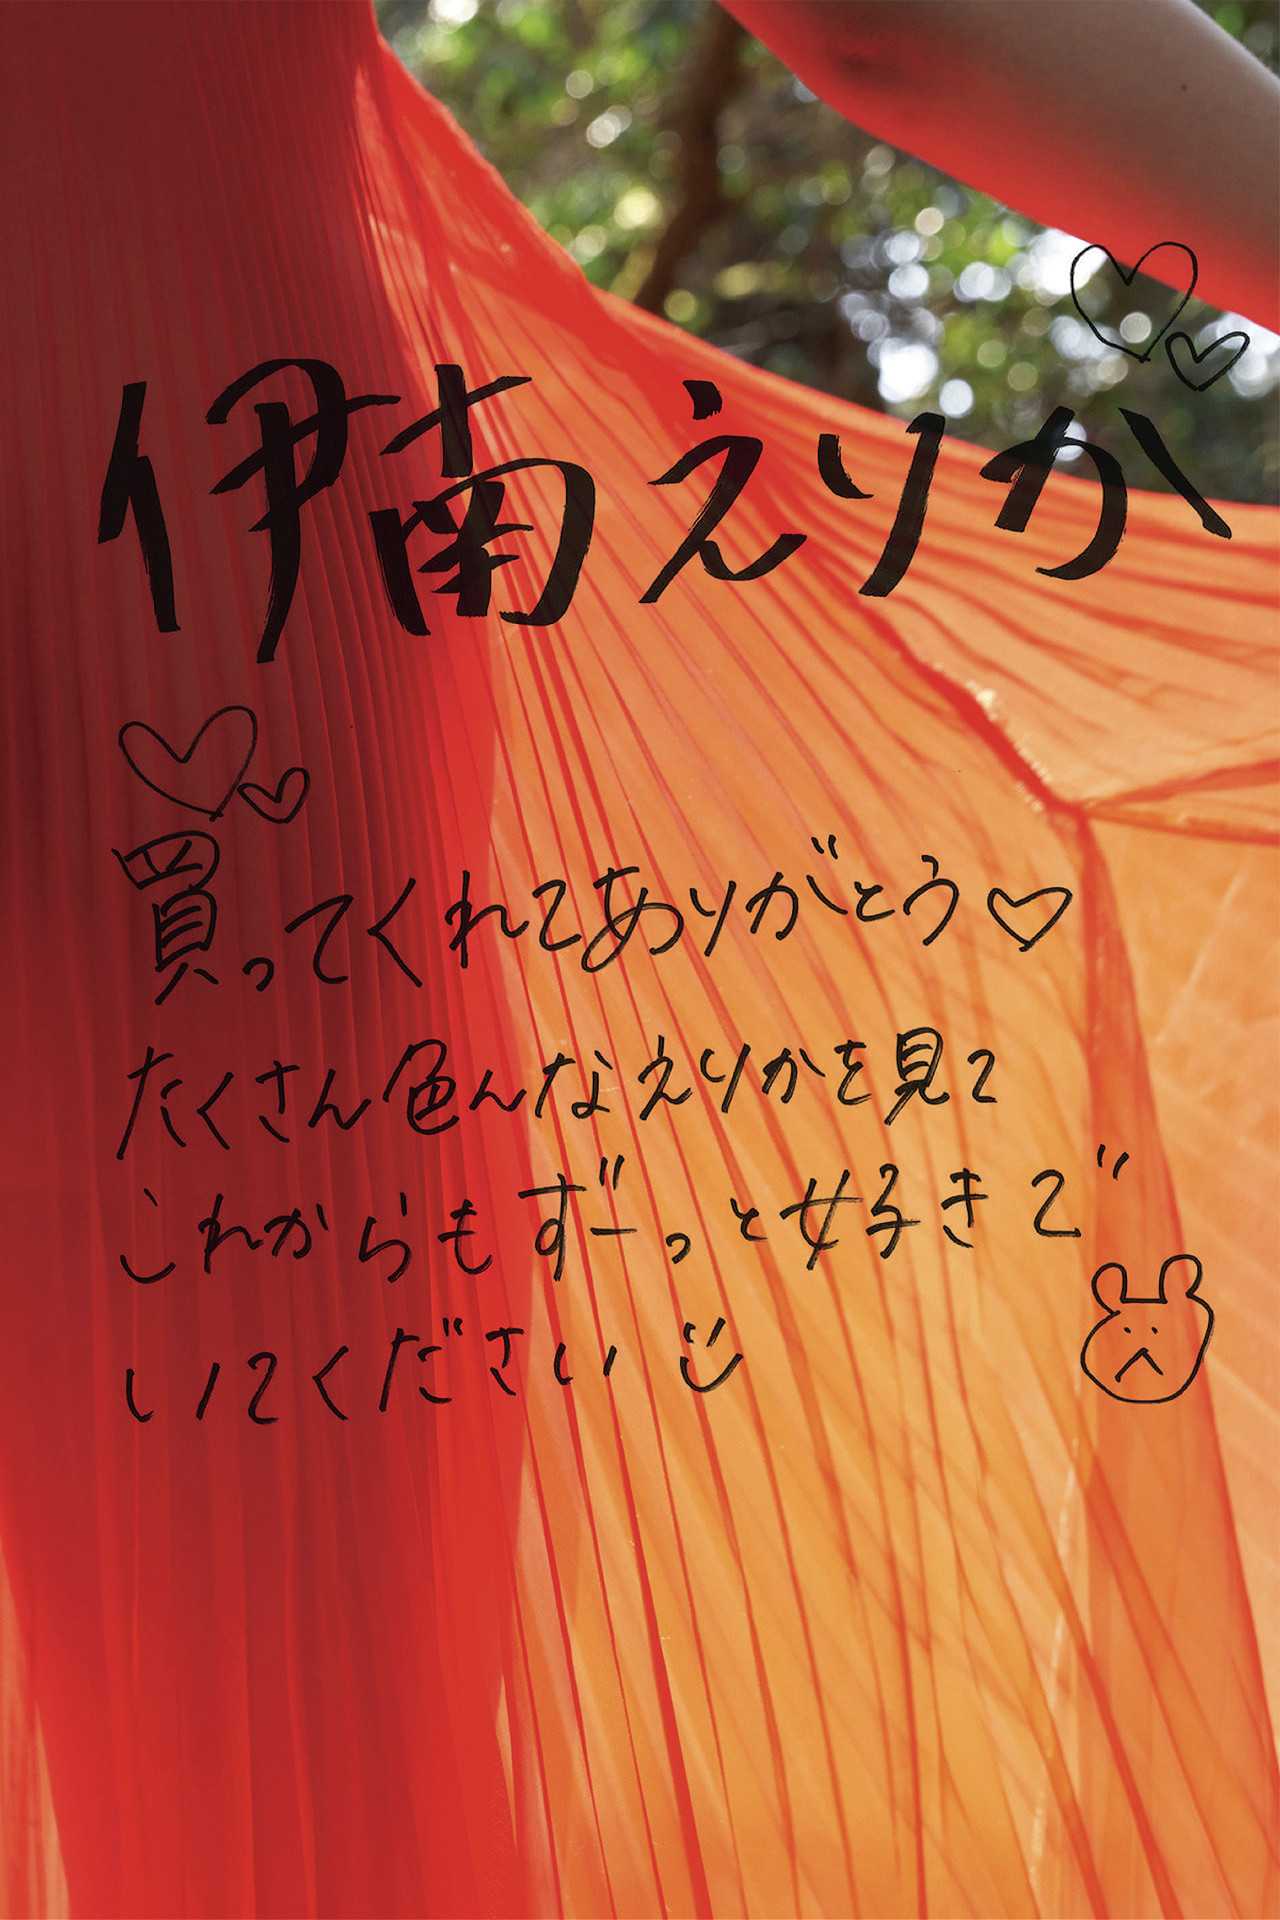 伊南えりか
買ってくれてありがとう♡
たくさん色んなえりかを見て
これからもずーっと好きで
いてください